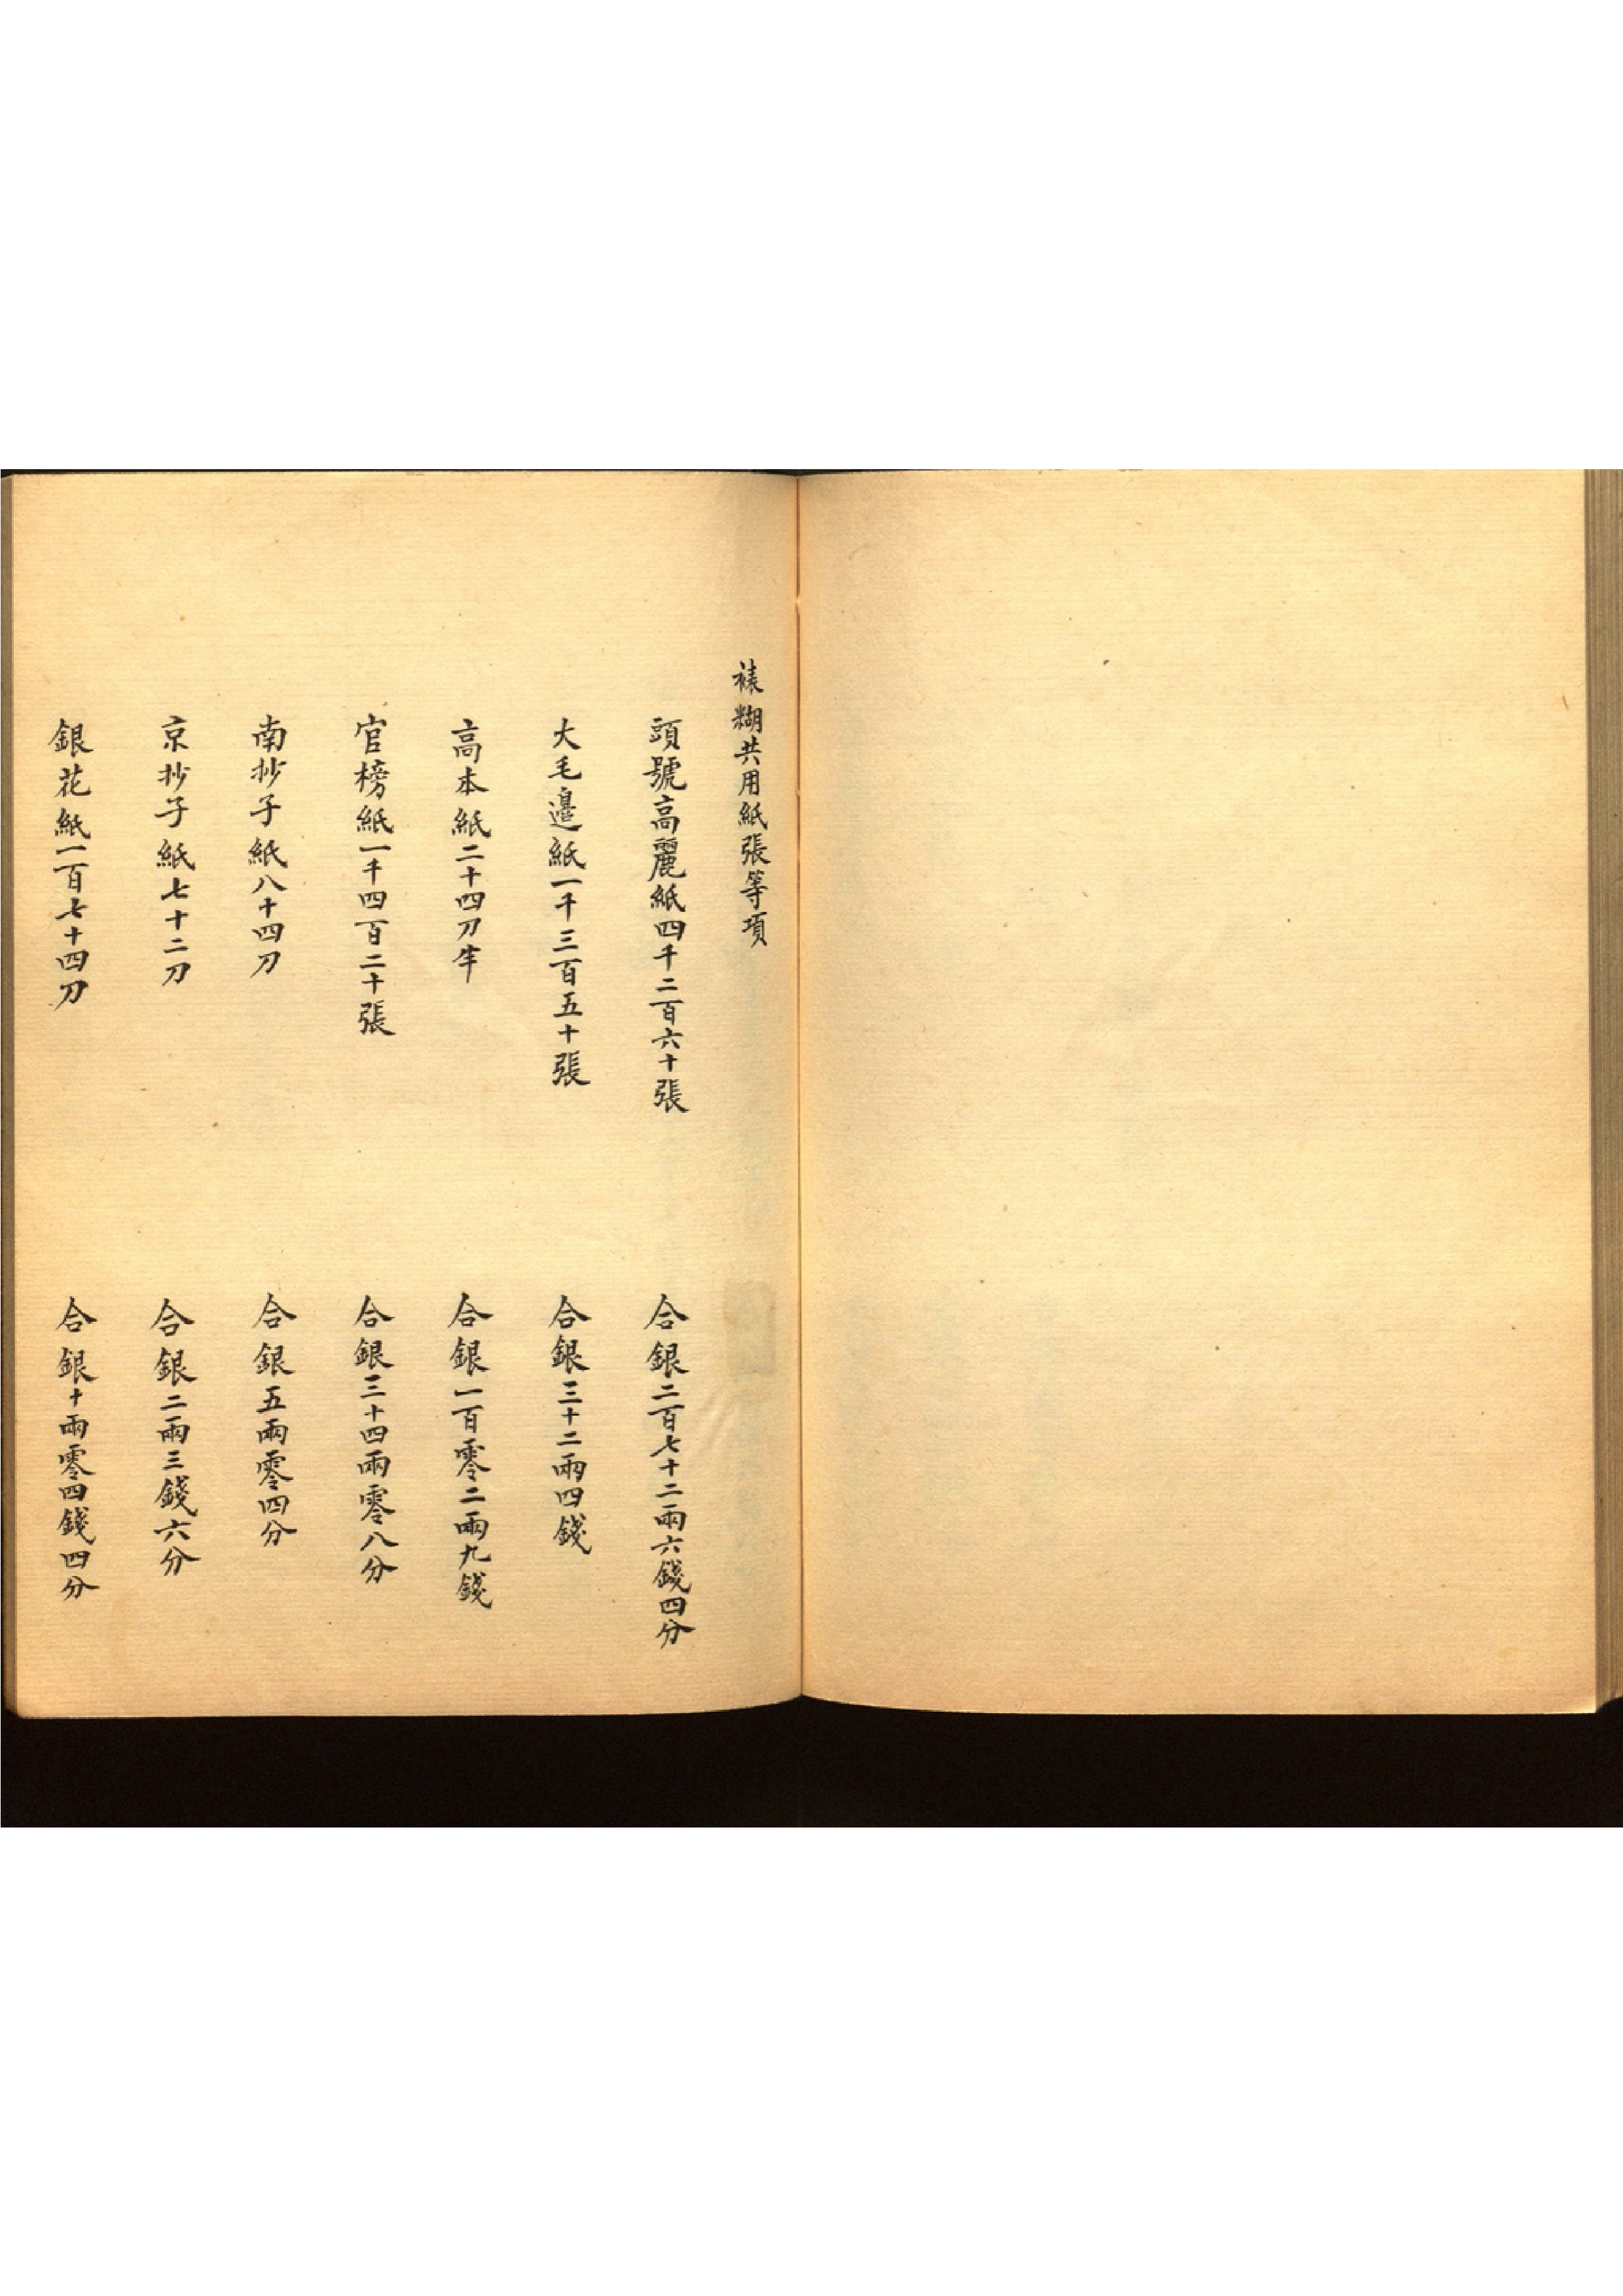 裱糊共用紙張等項
頭號高麗紙四千二百六十張 合銀二百七十二兩六錢四分
大毛邊紙一千三百五十張 合銀三十二兩四錢
高本紙二十四刀半 合銀一百零二兩九錢
官榜紙一千四百二十張 合銀三十四兩零八分
南抄子紙八十四刀 合銀五兩零四分
京抄子紙七十二刀 合銀二兩三錢六分
銀花紙一百七十四刀 合銀十兩零四錢四分